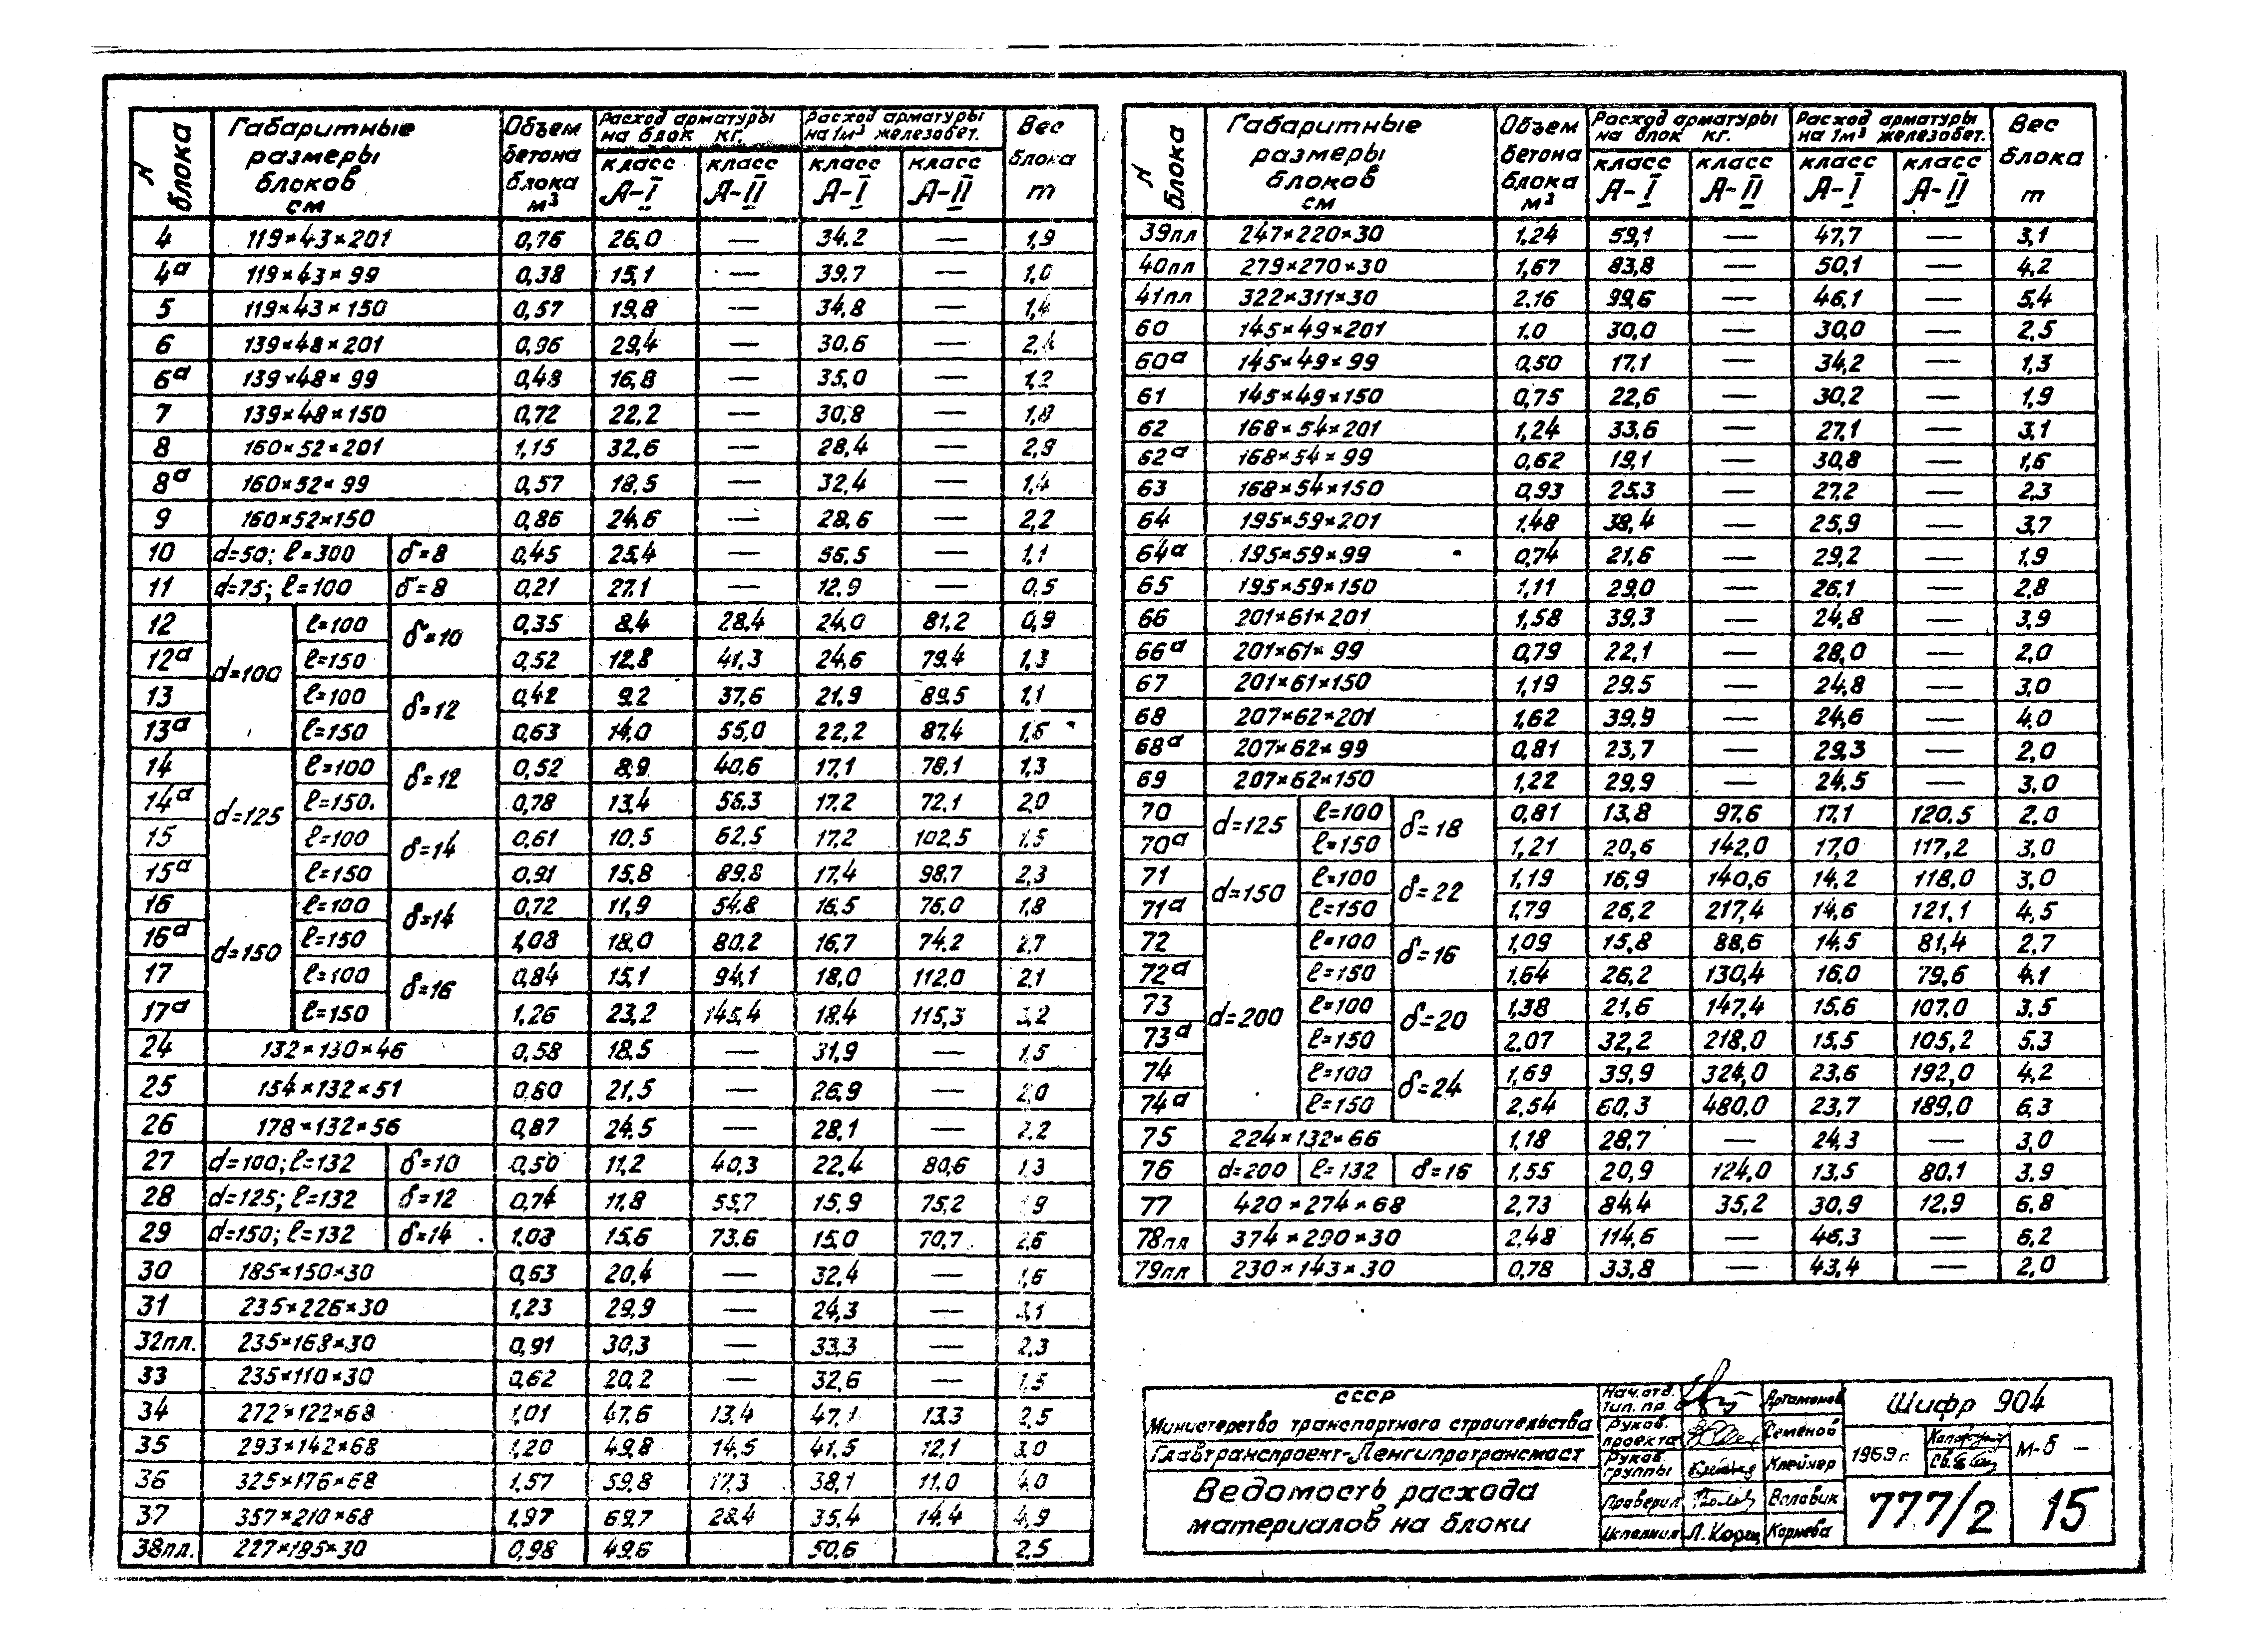 N блока | Габаритные размеры блоков см | Объем бетона блока м³ | Расход арматуры на блок кг. класс А-I | класс А-II | Расход арматуры на 1м³ железобет. класс А-I | класс А-II | Вес блока т
4 119×43×201 0,76 26,0 — 34,2 — 1,9
4а 119×43×99 0,38 15,1 — 39,7 — 1,0
5 119×43×150 0,57 19,8 — 34,8 — 1,4
6 139×48×201 0,96 29,4 — 30,6 — 2,4
6а 139×48×99 0,48 16,8 — 35,0 — 1,2
7 139×48×150 0,72 22,2 — 30,8 — 1,8
8 160×52×201 1,15 32,6 — 28,4 — 2,9
8а 160×52×99 0,57 18,5 — 32,4 — 1,4
9 160×52×150 0,86 24,6 — 28,6 — 2,2
10 d=50; ℓ=300 δ=8 0,45 25,4 — 56,5 — 1,1
11 d=75; ℓ=100 δ=8 0,21 27,1 — 12,9 — 0,5
12 d=100 ℓ=100 δ=10 0,35 8,4 28,4 24,0 81,2 0,9
12а ℓ=150 0,52 12,8 41,3 24,6 79,4 1,3
13 ℓ=100 δ=12 0,42 9,2 37,6 21,9 89,5 1,1
13а ℓ=150 0,63 14,0 55,0 22,2 87,4 1,6
14 d=125 ℓ=100 δ=12 0,52 8,9 40,6 17,1 78,1 1,3
14а ℓ=150 0,78 13,4 56,3 17,2 72,1 2,0
15 ℓ=100 δ=14 0,61 10,5 62,5 17,2 102,5 1,5
15а ℓ=150 0,91 15,8 89,8 17,4 98,7 2,3
16 d=150 ℓ=100 δ=14 0,72 11,9 54,8 16,5 76,0 1,8
16а ℓ=150 1,08 18,0 80,2 16,7 74,2 2,7
17 ℓ=100 δ=16 0,84 15,1 94,1 18,0 112,0 2,1
17а ℓ=150 1,26 23,2 145,4 18,4 115,3 3,2
24 132×130×46 0,58 18,5 — 31,9 — 1,5
25 154×132×51 0,80 21,5 — 26,9 — 2,0
26 178×132×56 0,87 24,5 — 28,1 — 2,2
27 d=100; ℓ=132 δ=10 0,50 11,2 40,3 22,4 80,6 1,3
28 d=125; ℓ=132 δ=12 0,74 11,8 55,7 15,9 75,2 1,9
29 d=150; ℓ=132 δ=14 1,03 15,6 73,6 15,0 70,7 2,6
30 185×150×30 0,63 20,4 — 32,4 — 1,6
31 235×226×30 1,23 29,9 — 24,3 — 3,1
32пл. 235×168×30 0,91 30,3 — 33,3 — 2,3
33 235×110×30 0,62 20,2 — 32,6 — 1,5
34 272×122×68 1,01 47,6 13,4 47,1 13,3 2,5
35 293×142×68 1,20 49,8 14,5 41,5 12,1 3,0
36 325×176×68 1,57 59,8 17,3 38,1 11,0 4,0
37 357×210×68 1,97 69,7 28,4 35,4 14,4 4,9
38пл. 227×195×30 0,98 49,6 50,6 2,5
N блока | Габаритные размеры блоков см | Объем бетона блока м³ | Расход арматуры на блок кг. класс А-I | класс А-II | Расход арматуры на 1м³ железобет. класс А-I | класс А-II | Вес блока т
39пл 247×220×30 1,24 59,1 — 47,7 — 3,1
40пл 279×270×30 1,67 83,8 — 50,1 — 4,2
41пл 322×311×30 2,16 99,6 — 46,1 — 5,4
60 145×49×201 1,0 30,0 — 30,0 — 2,5
60а 145×49×99 0,50 17,1 — 34,2 — 1,3
61 145×49×150 0,75 22,6 — 30,2 — 1,9
62 168×54×201 1,24 33,6 — 27,1 — 3,1
62а 168×54×99 0,62 19,1 — 30,8 — 1,6
63 168×54×150 0,93 25,3 — 27,2 — 2,3
64 195×59×201 1,48 38,4 — 25,9 — 3,7
64а 195×59×99 0,74 21,6 — 29,2 — 1,9
65 195×59×150 1,11 29,0 — 26,1 — 2,8
66 201×61×201 1,58 39,3 — 24,8 — 3,9
66а 201×61×99 0,79 22,1 — 28,0 — 2,0
67 201×61×150 1,19 29,5 — 24,8 — 3,0
68 207×62×201 1,62 39,9 — 24,6 — 4,0
68а 207×62×99 0,81 23,7 — 29,3 — 2,0
69 207×62×150 1,22 29,9 — 24,5 — 3,0
70 d=125 ℓ=100 δ=18 0,81 13,8 97,6 17,1 120,5 2,0
70а ℓ=150 1,21 20,6 142,0 17,0 117,2 3,0
71 d=150 ℓ=100 δ=22 1,19 16,9 140,6 14,2 118,0 3,0
71а ℓ=150 1,79 26,2 217,4 14,6 121,1 4,5
72 d=200 ℓ=100 δ=16 1,09 15,8 88,6 14,5 81,4 2,7
72а ℓ=150 1,64 26,2 130,4 16,0 79,6 4,1
73 ℓ=100 δ=20 1,38 21,6 147,4 15,6 107,0 3,5
73а ℓ=150 2,07 32,2 218,0 15,5 105,2 5,3
74 ℓ=100 δ=24 1,69 39,9 324,0 23,6 192,0 4,2
74а ℓ=150 2,54 60,3 480,0 23,7 189,0 6,3
75 224×132×66 1,18 28,7 — 24,3 — 3,0
76 d=200 ℓ=132 δ=16 1,55 20,9 124,0 13,5 80,1 3,9
77 420×274×68 2,73 84,4 35,2 30,9 12,9 6,8
78пл 374×290×30 2,48 114,6 — 46,3 — 6,2
79пл 230×143×30 0,78 33,8 — 43,4 — 2,0
СССР
Министерство транспортного строительства
Главтранспроект-Ленгипротрансмост
Ведомость расхода
материалов на блоки
Нач. отд. тип. пр. Артамонов
Руков. проекта Семенов
Руков. группы Клейнер
Проверил Воловик
Исполнил Л. Корн Корнева
Шифр 904
1969 г. М-б —
777/2 15